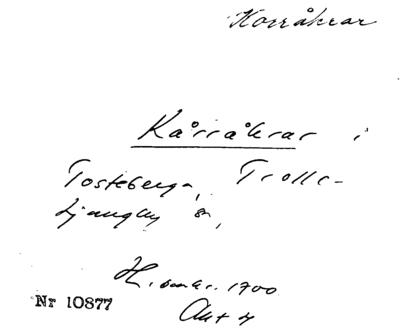 Korråkrar
Kårråkrar i
Tosteberga, Trolle-
Ljungby sn,
H. omkr. 1700
Akt 4
Nr 10877